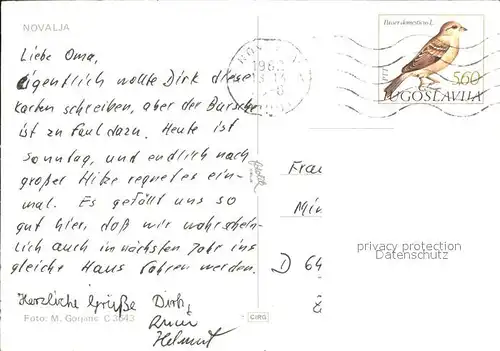 NOVALJA
Liebe Oma,
eigentlich wollte Dirk diese
Karten schreiben, aber der Bursche
ist zu faul dazu. Heute ist
Sonntag, und endlich nach
großer Hitze regnet es ein-
mal. Es gefällt uns so
gut hier, daß wir wahrschein-
lich auch im nächsten Jahr ins
gleiche Haus fahren werden.
Herzliche Grüße Dirk,
Helmut
Foto: M. Gorjanc C 3643
CIRG
Passer domesticus L.
5.60
JUGOSLAVIJA
Frau
Min
D 64
privacy protection
Datenschutz